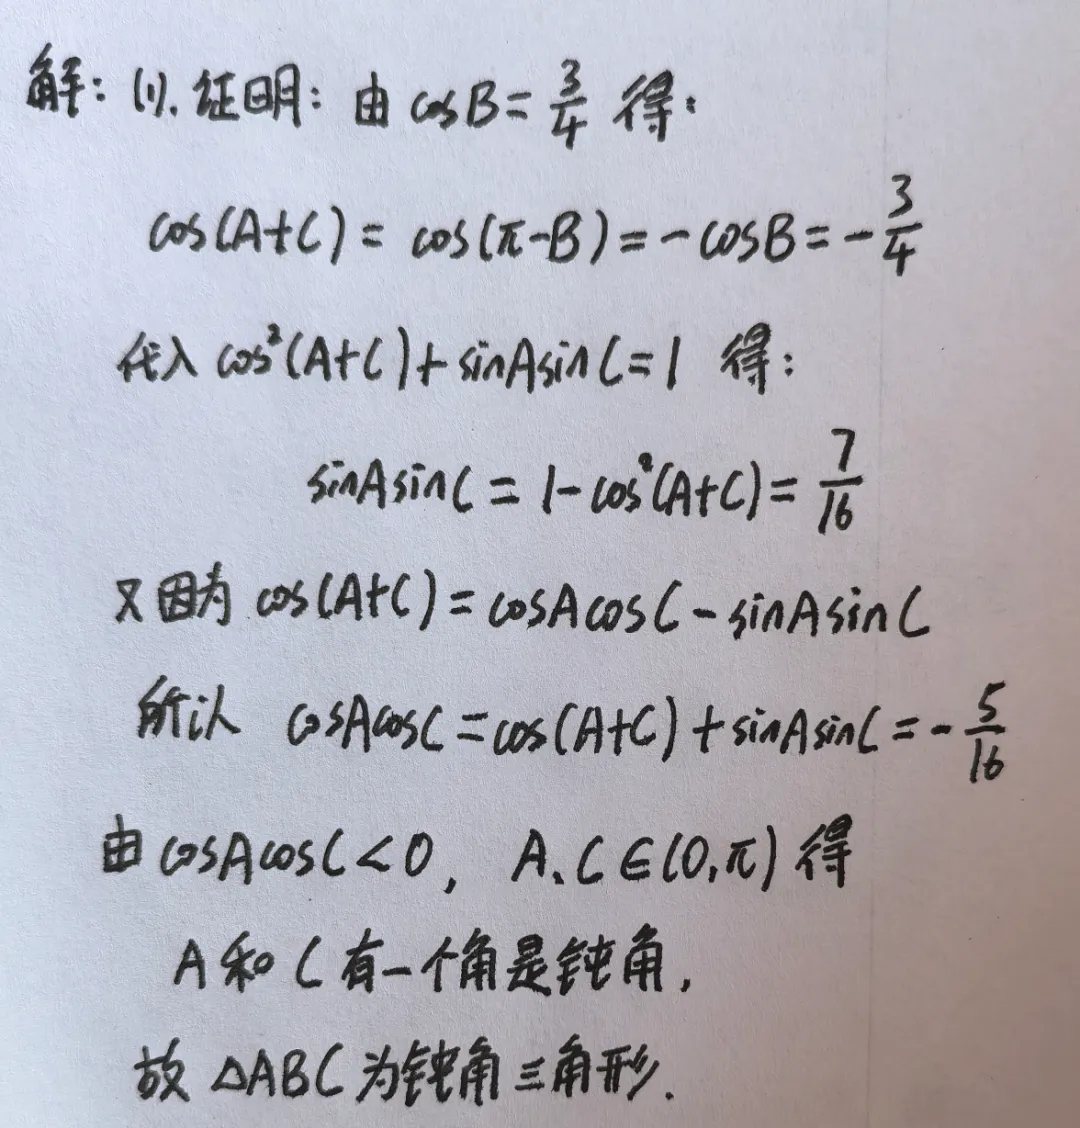 解：(1). 证明：由 cosB = 3/4 得：
cos(A+C) = cos(π-B) = -cosB = -3/4
代入 cos²(A+C) + sinAsinC = 1 得：
sinAsinC = 1 - cos²(A+C) = 7/16
又因为 cos(A+C) = cosAcosC - sinAsinC
所以 cosAcosC = cos(A+C) + sinAsinC = -5/16
由 cosAcosC < 0, A、C ∈ (0,π) 得
A 和 C 有一个角是钝角,
故 △ABC 为钝角三角形.